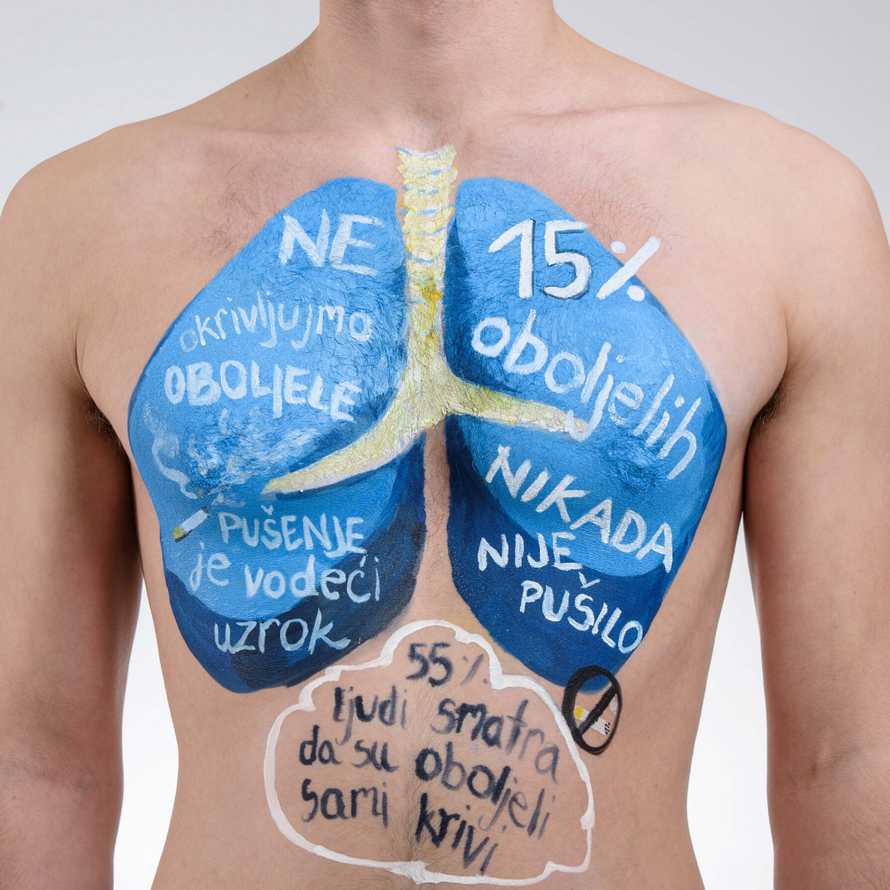 NE
okrivljujmo
OBOLJELE
PUŠENJE
je vodeći
uzrok
15%
oboljelih
NIKADA
NIJE
PUŠILO
55%
ljudi smatra
da su oboljeli
sami krivi